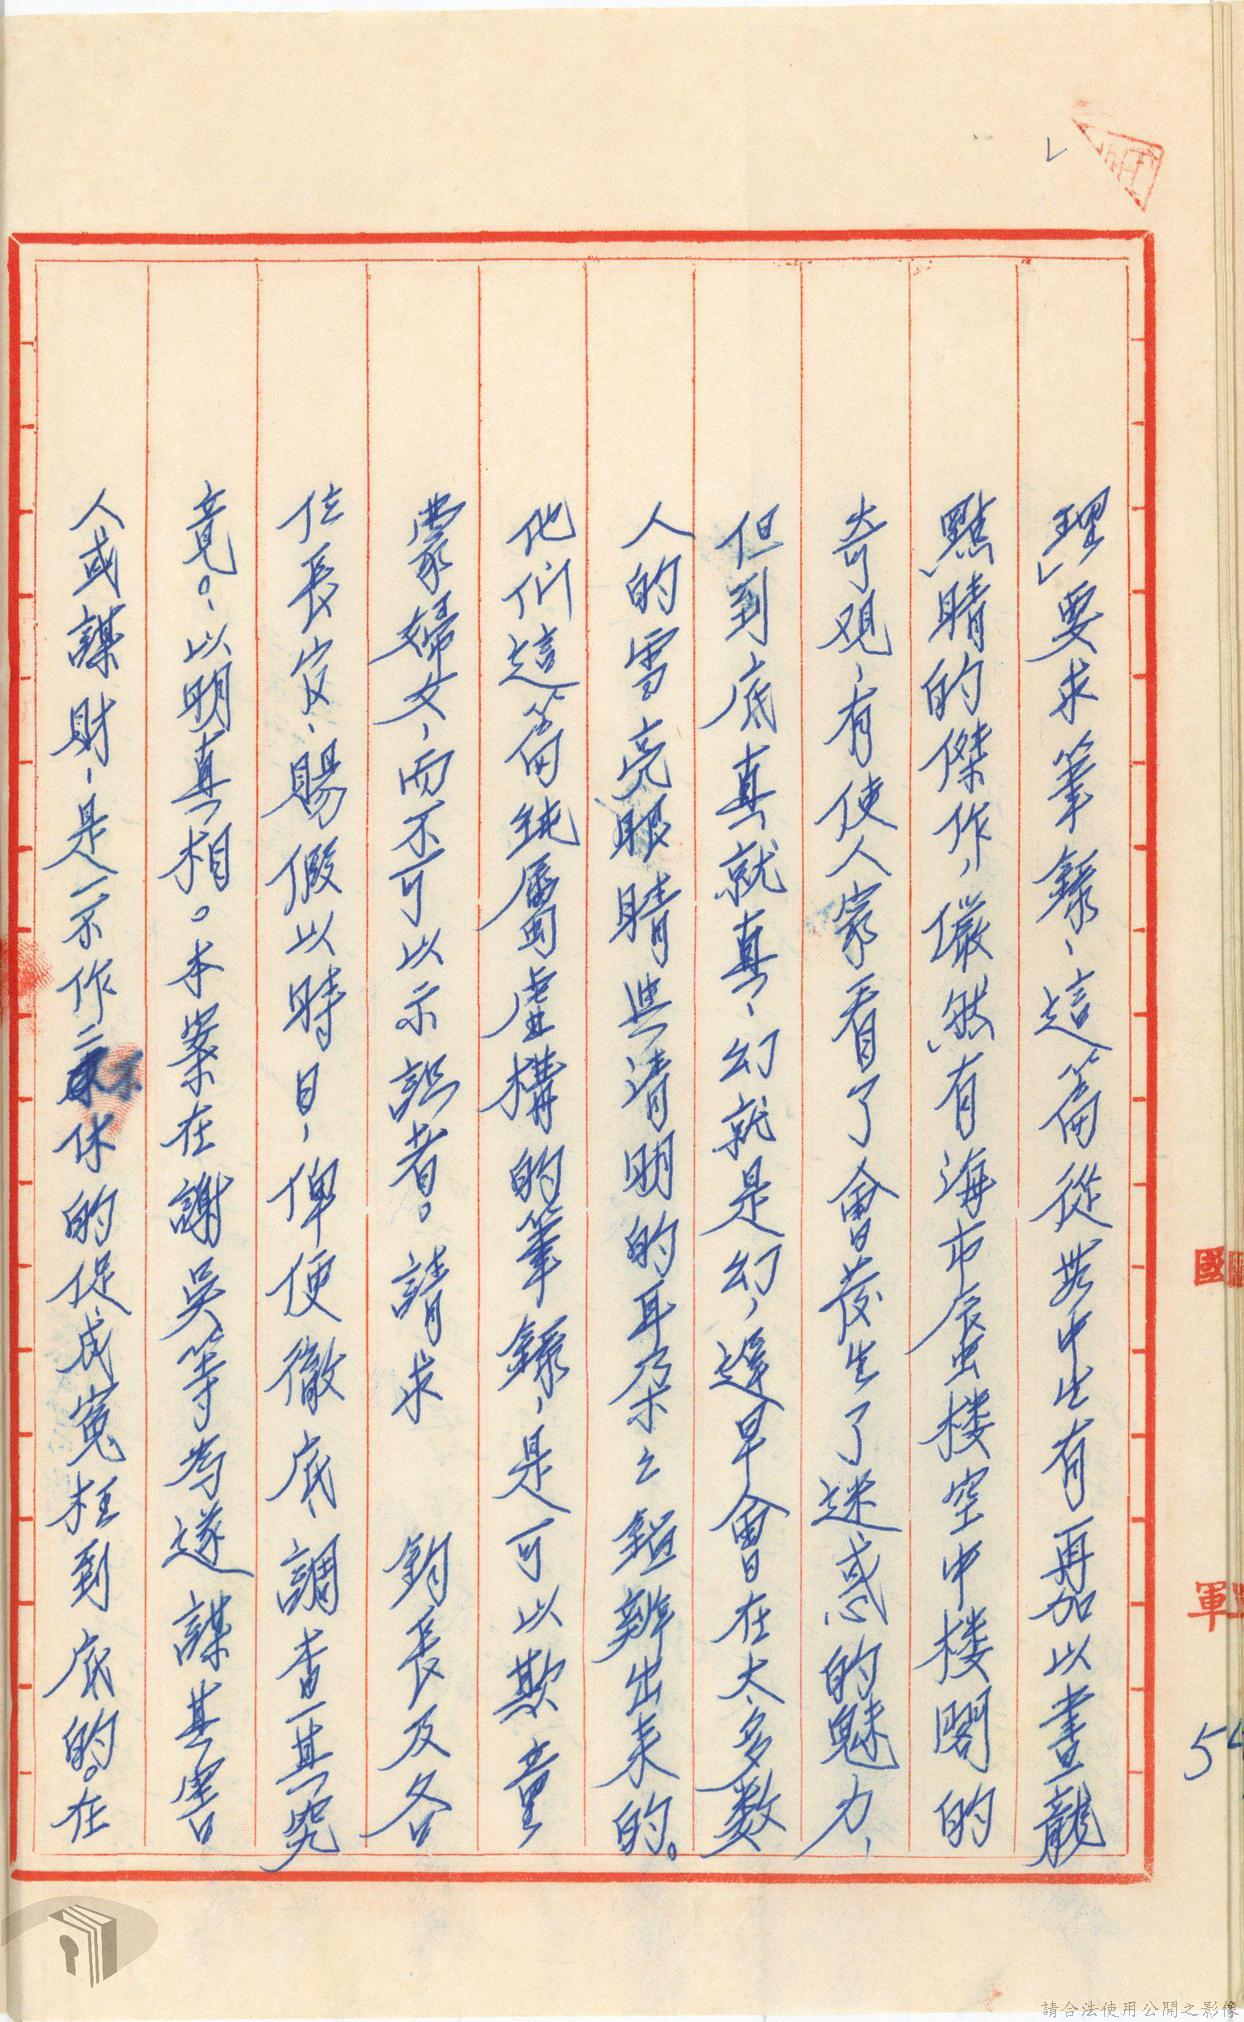 理」要求筆錄，這篇從無中生有再加以畫龍
點睛的傑作，儼然有海市辰虫楼空中楼閣的
奇观，有使人家看了會發生了迷惑的魅力，
但到底真就真，幻就是幻，遲早會在大多数
人的雪亮眼睛與清明的耳朵之鑑辨出来的。
他们這篇純屬虛構的筆錄，是可以欺童
蒙婦女，而不可以示識者。請求　鈞長及各
位長官，賜假以時日，俾便徹底調查其究
竟。以明真相。本案在謝吳等為遂謀其害
人或謀財，是一不作二不休的促成冤枉到底的。在
國
軍
54
請合法使用公開之影像